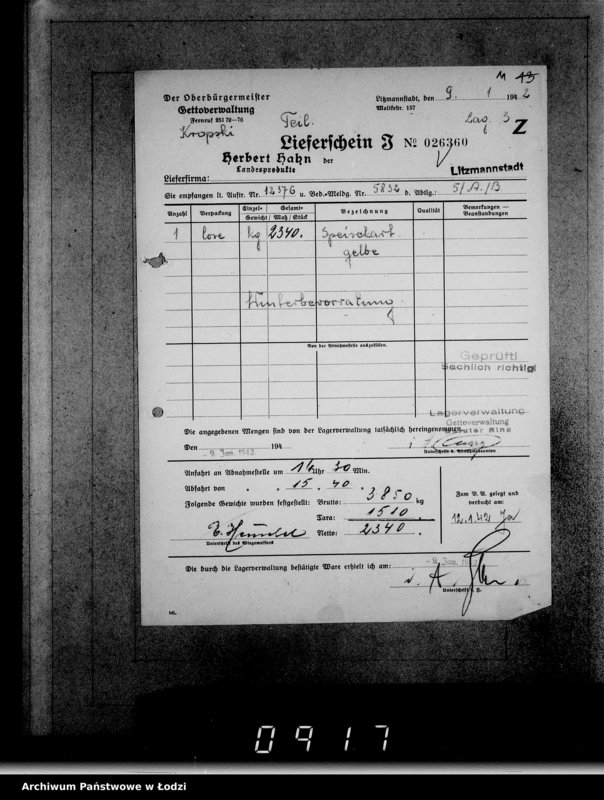 M 43
Der Oberbürgermeister
Gettoverwaltung
Fernruf 251 72—76
Kropski
Litzmannstadt, den 9. 1 1942
Moltkestr. 157
Teil.
Lag. 3
Z
Lieferschein J № 026360
Herbert Hahn der
Landesprodukte
Litzmannstadt
Lieferfirma:
Sie empfangen lt. Auftr. Nr. 12376 u. Bed.-Meldg. Nr. 5832 d. Abtlg.: 5/A./B
Anzahl Verpackung Einzel- Gesamt- Bezeichnung Qualität Bemerkungen —
Gewicht / Maß / Stück Beanstandungen
1 lose kg 2340. Speisekart.
gelbe
Winterbevorratung
Von der Abnahmestelle auszufüllen.
Geprüft!
Sachlich richtig!
Lagerverwaltung
Gettoverwaltung
Die angegebenen Mengen sind von der Lagerverwaltung tatsächlich hereingenommen.
Den -9. Jan. 1942 194
Unterschrift d. Abnahmebeamten
Anfahrt an Abnahmestelle um 14 Uhr 30 Min.
Abfahrt von " " 15 . 40 "
Folgende Gewichte wurden festgestellt: Brutto: 3850 kg
Tara: 1510
Netto: 2340 .
Unterschrift des Wiegemeisters
Zum B. A. gelegt und
verbucht am:
12.1.42
Die durch die Lagerverwaltung bestätigte Ware erhielt ich am:
i. A.
ML.
0917
Archiwum Państwowe w Łodzi